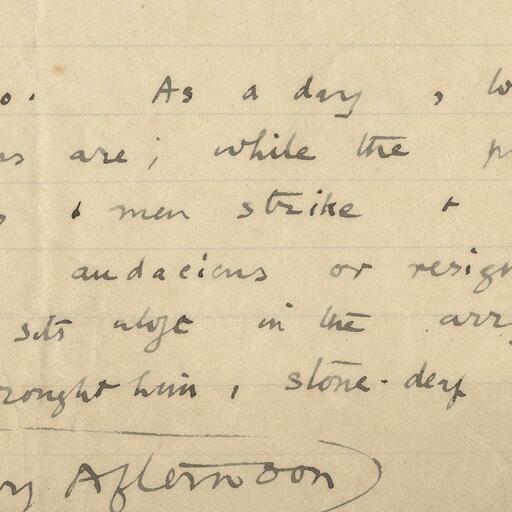 As a day, lo
are; while the
& men strike &
audacious or resign
sits aloft in the
rought him, stone-deaf
Afternoon)